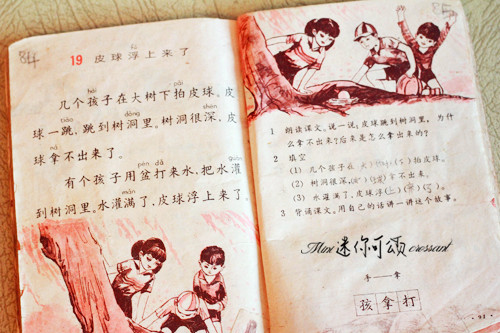 fú
19 皮球浮上来了
hái pāi
几个孩子在大树下拍皮球。皮
tiào dòng shēn
球一跳,跳到树洞里。树洞很深,皮
ná
球拿不出来了。
pén dǎ guàn
有个孩子用盆打来水,把水灌
mǎn
到树洞里。水灌满了,皮球浮上来了。
1 朗读课文。说一说:皮球跳到树洞里,为什
么拿不出来?后来是怎么拿出来的?
2 填空
(1) 几个孩子在大(树)(下)拍皮球。
(2) 树洞很深,( )( )拿不出来。
(3) 水灌满了,皮球浮(上)( )( )。
3 背诵课文。用自己的话讲一讲这个故事。
Mini 迷你可颂 croissant
手——拿
孩 拿 打